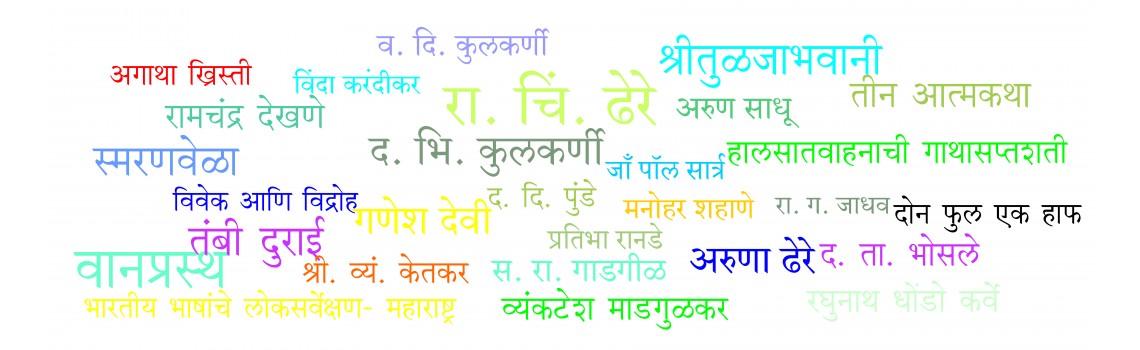 व. दि. कुलकर्णी
श्रीतुळजाभवानी
अगाथा ख्रिस्ती
विंदा करंदीकर
तीन आत्मकथा
रा. चिं. ढेरे
अरुण साधू
रामचंद्र देखणे
स्मरणवेळा
द. भि. कुलकर्णी
जाँ पॉल सार्त्र
हालसातवाहनाची गाथासप्तशती
विवेक आणि विद्रोह
द. दि. पुंडे
गणेश देवी
मनोहर शहाणे
रा. ग. जाधव
दोन फुल एक हाफ
तंबी दुराई
प्रतिभा रानडे
अरुणा ढेरे
द. ता. भोसले
वानप्रस्थ
श्री. व्यं. केतकर
स. रा. गाडगीळ
भारतीय भाषांचे लोकसर्वेक्षण- महाराष्ट्र
व्यंकटेश माडगुळकर
रघुनाथ धोंडो कर्वे